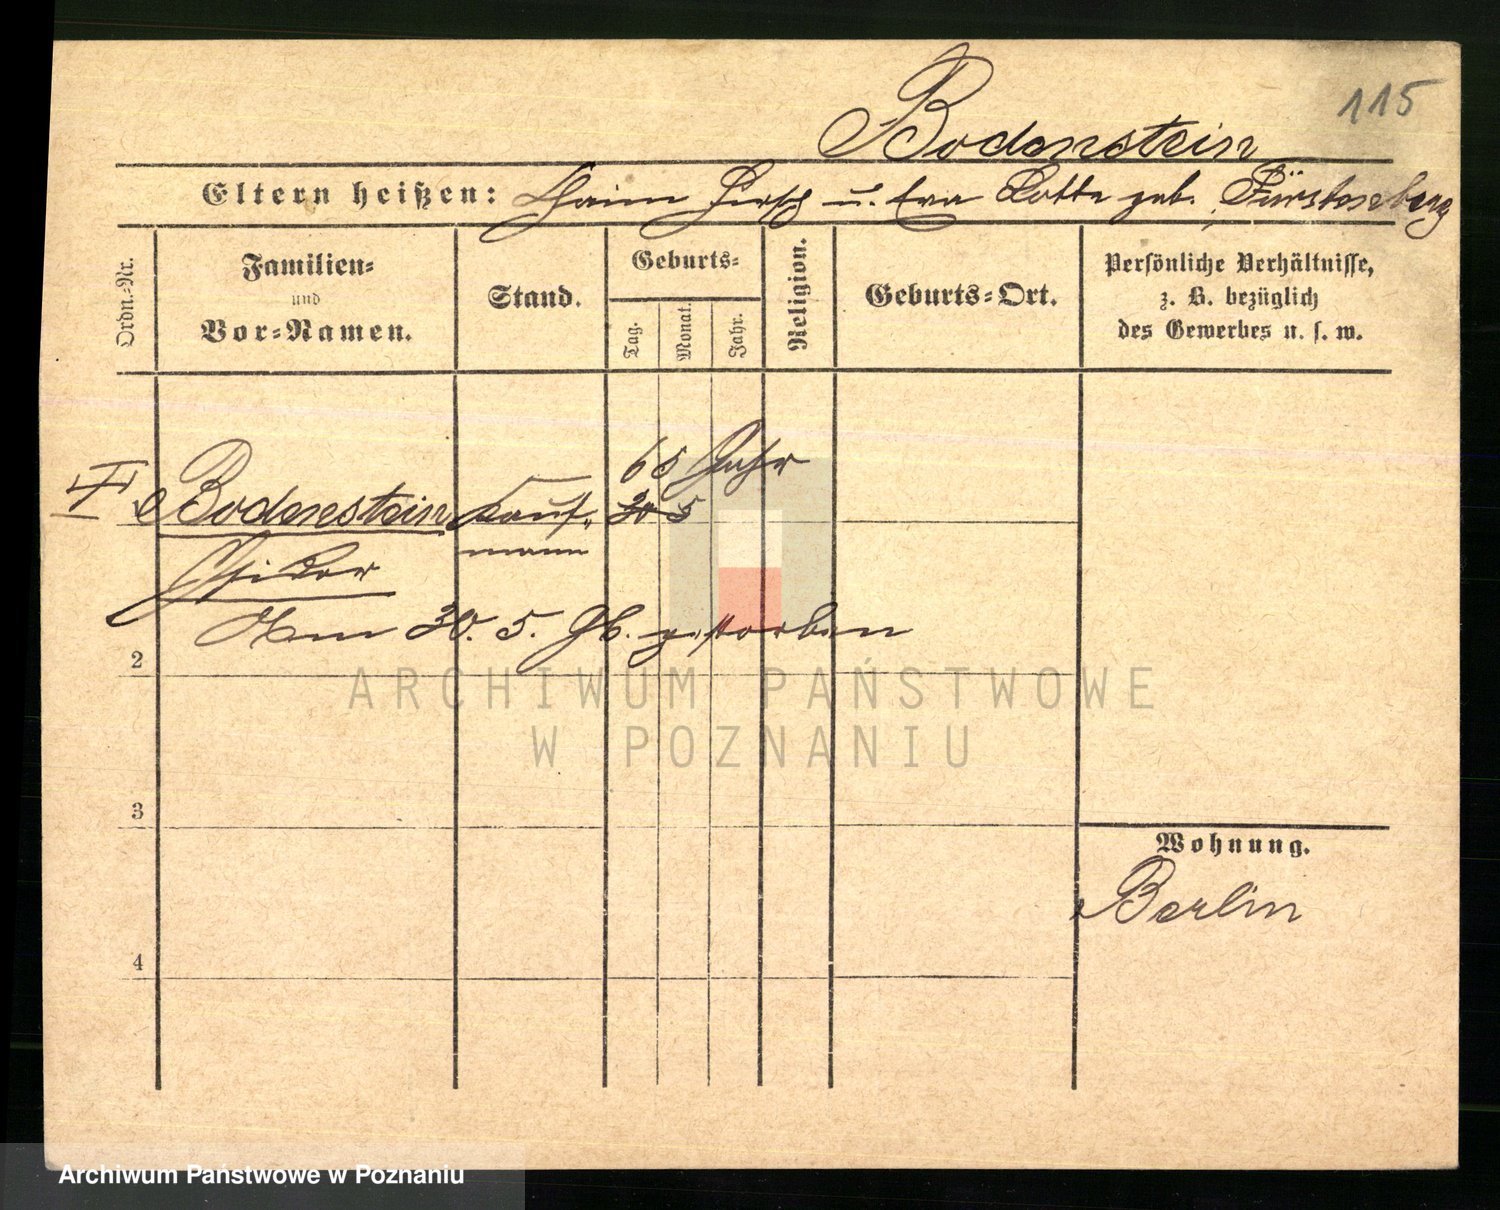 115
Bodenstein
Eltern heißen: Chaim Hirsch u. Eva Lotte geb. Fürstenberg
Ordn.-Nr.
Familien-
und
Vor-Namen.
Stand.
Geburts-
Tag.
Monat.
Jahr.
Religion.
Geburts-Ort.
Persönliche Verhältnisse,
z. B. bezüglich
des Gewerbes u. s. w.
65 Jahr
Bodenstein Kauf- 30 5
mann
Isidor
Am 30. 5. 96. gestorben
2
ARCHIWUM PAŃSTWOWE
W POZNANIU
3
Wohnung.
Berlin
4
Archiwum Państwowe w Poznaniu